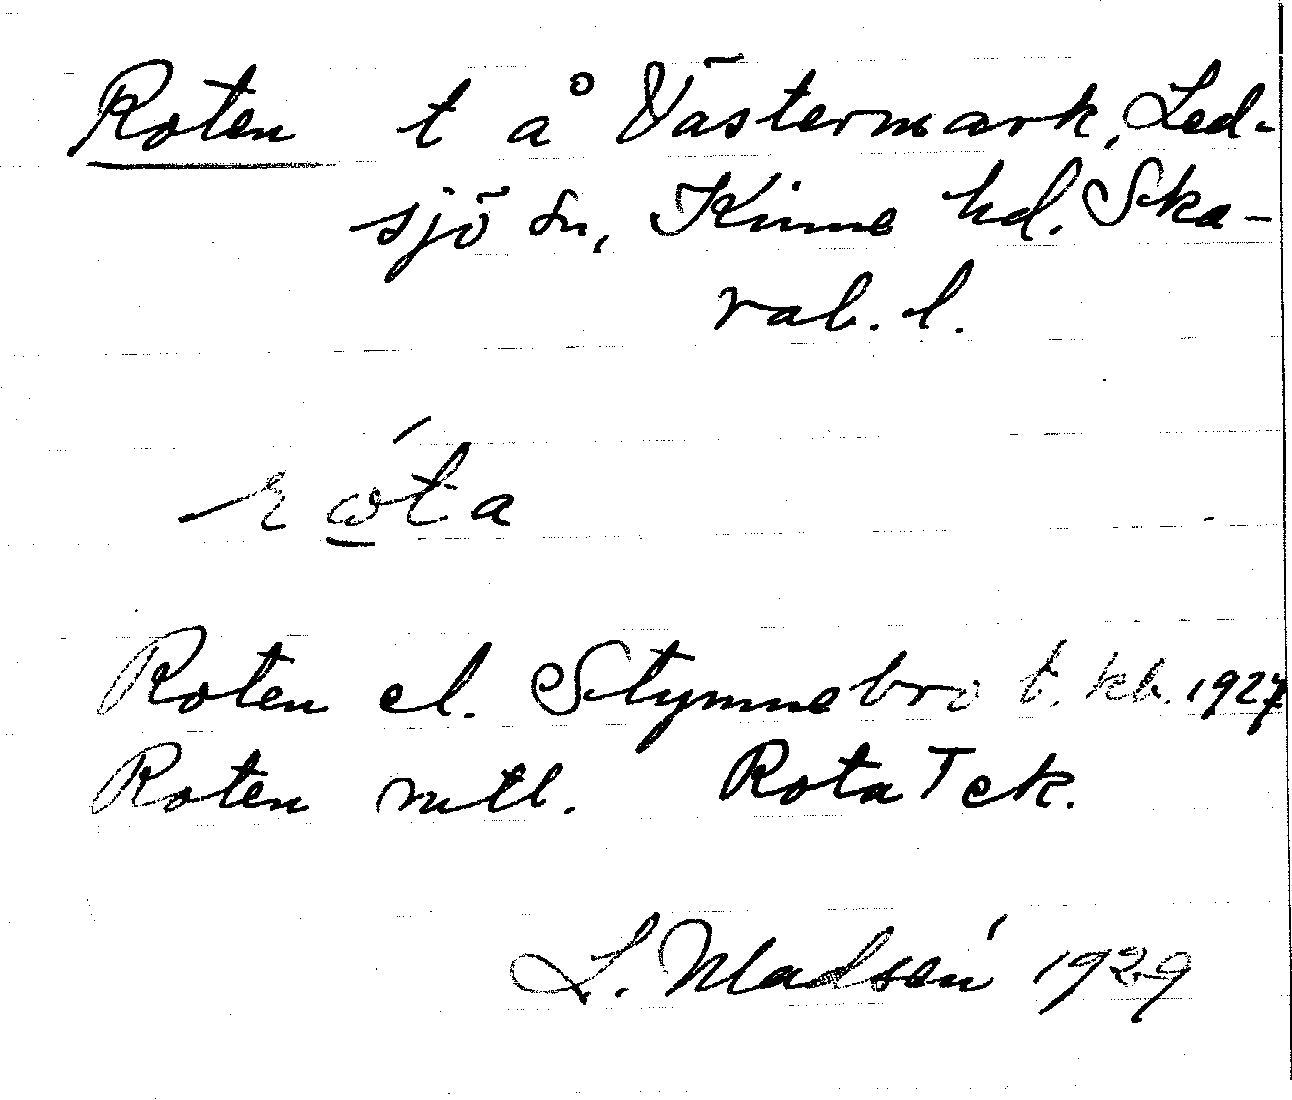 Roten t å Västermark, Led-
sjö sn, Kinne hd. Ska-
rab. l.
rώ̲ta
Roten el. Stymnebro t. kb. 1927
Roten mtl. Rota T ek.
L. Madsén 1929